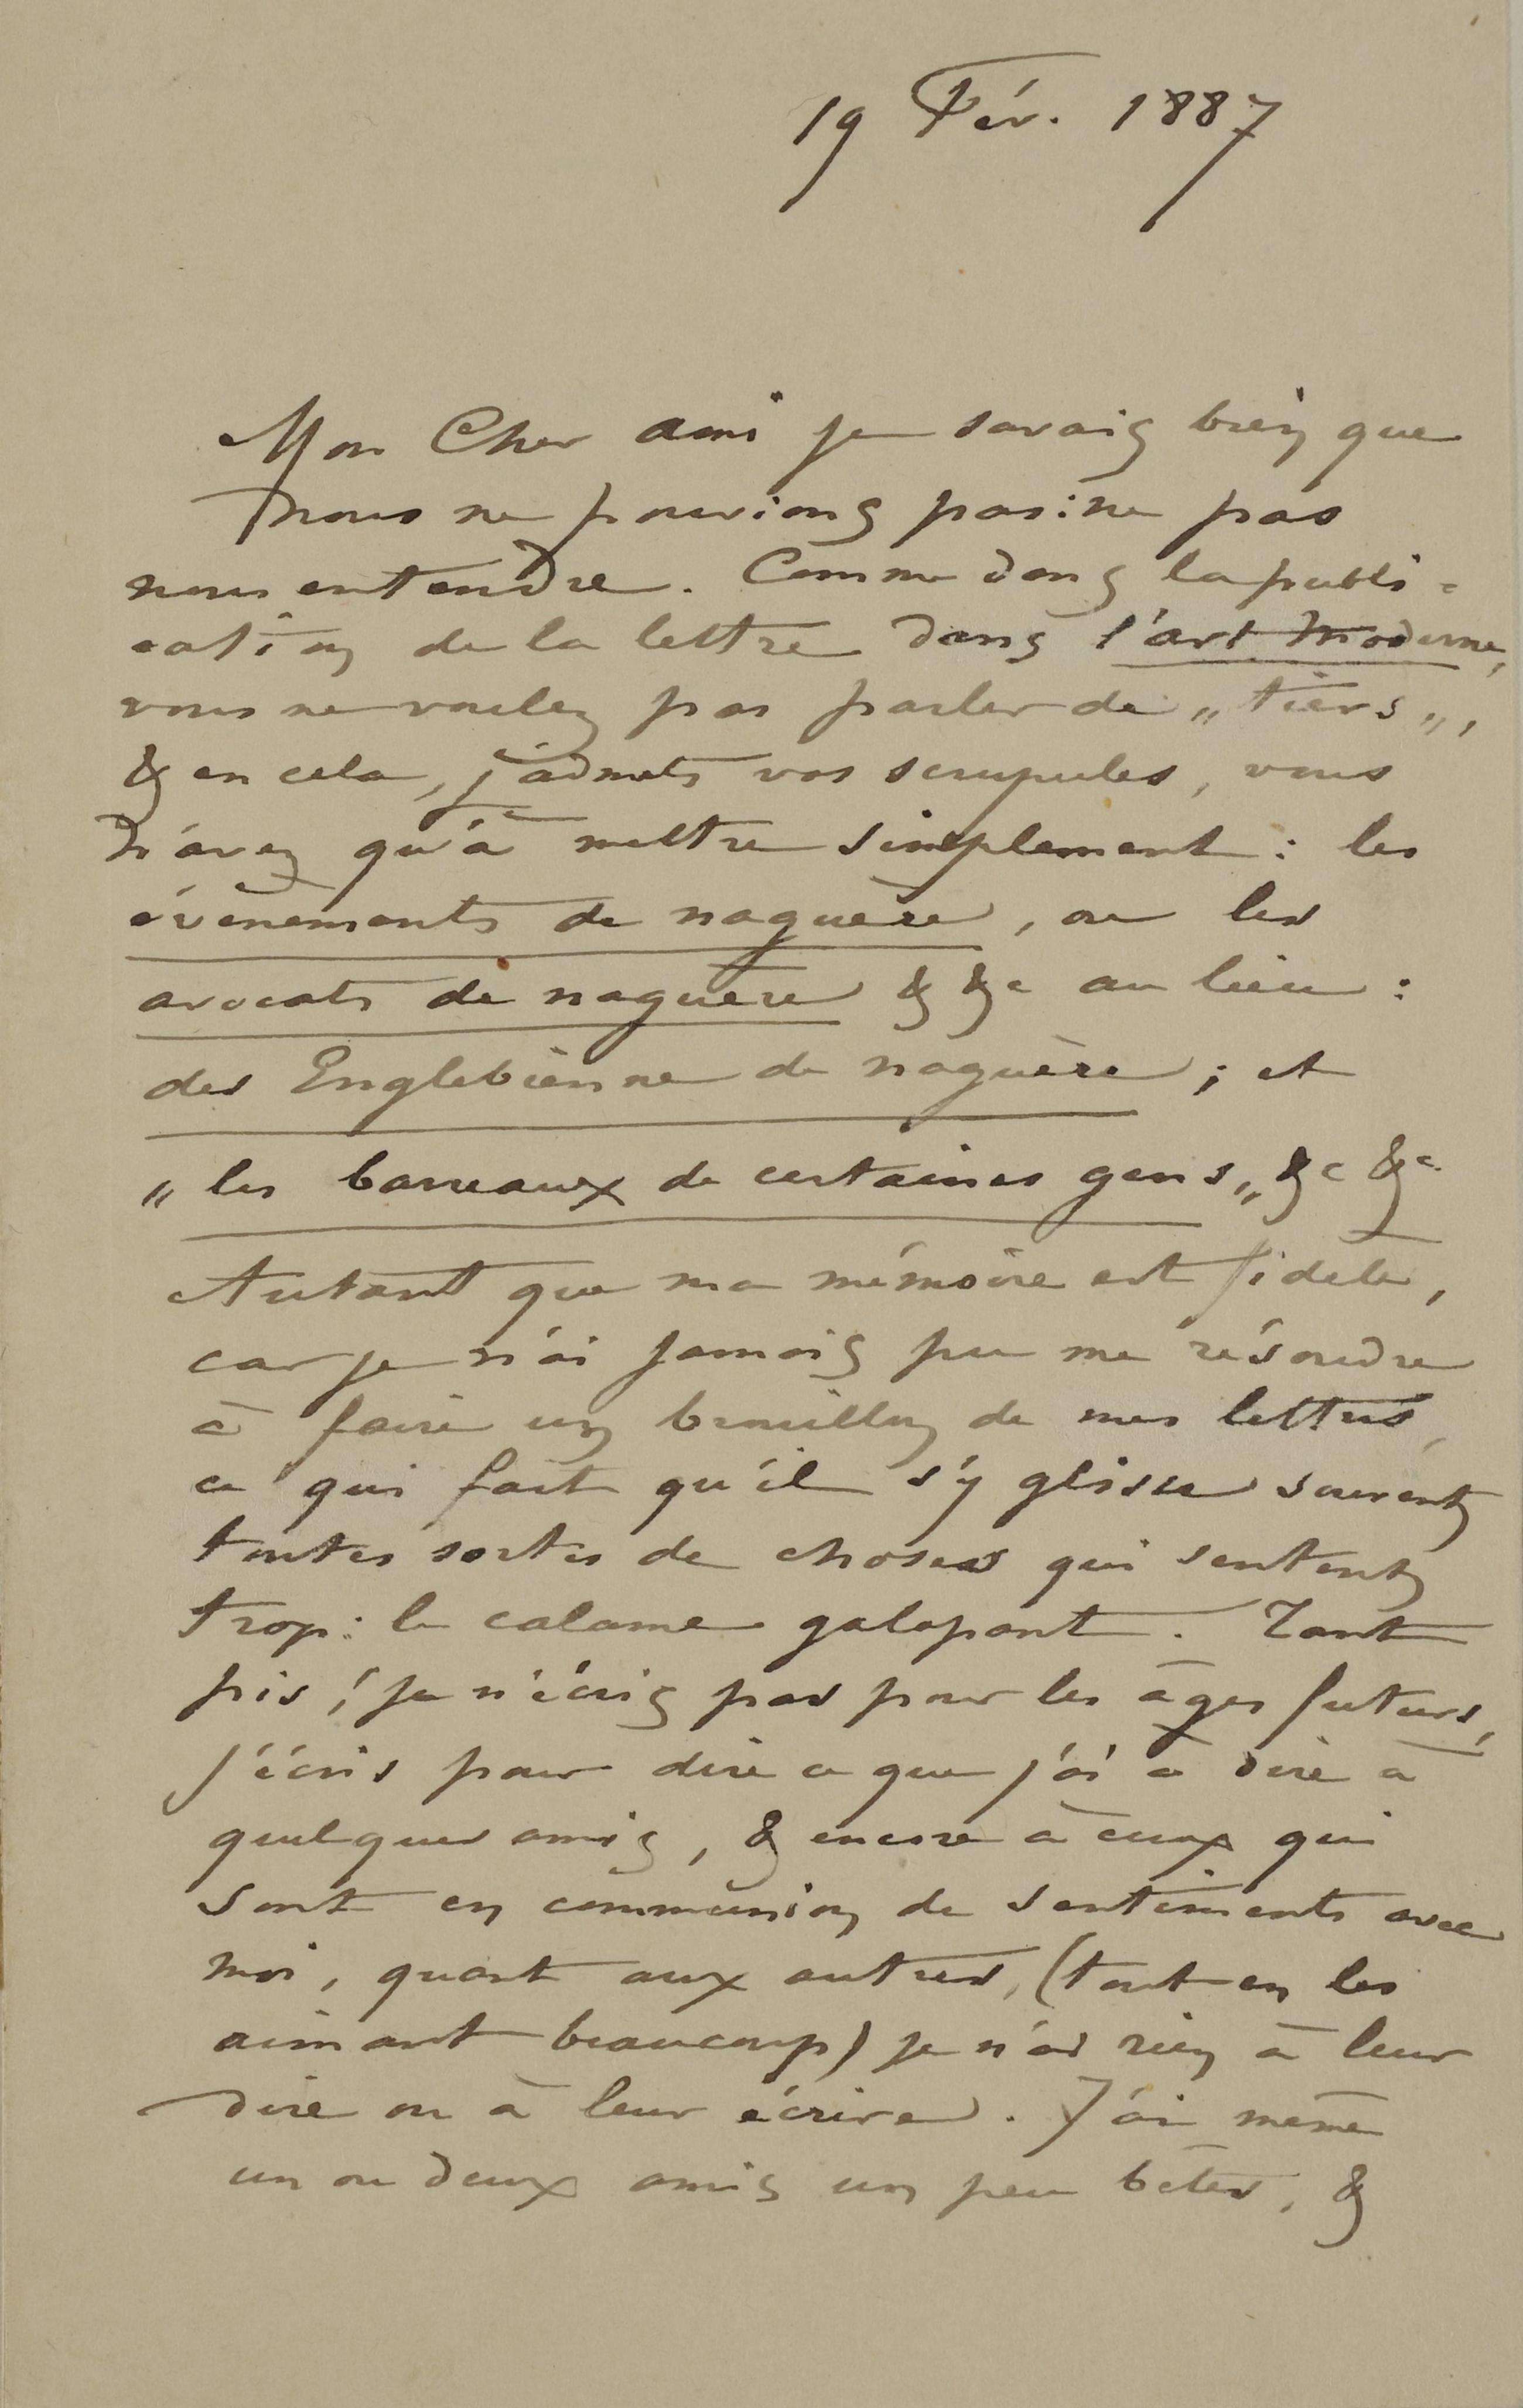 19 Fév. 1887
Mon Cher ami je savais bien que
nous ne pouvions pas: ne pas
nous entendre. Comme dans la publi=
cation de la lettre dans l'art Moderne,
vous ne voulez pas parler de „tiers„,
& en cela, j'admets vos scrupules, vous
n'avez qu'à mettre simplement: les
évènements de naguère, ou les
avocats de naguère & &c au lieu:
des Englebienne de naguère; et
„les barreaux de certaines gens„ &c &c.
Autant que ma mémoire est fidele,
car je n'ai jamais pu me résoudre
à faire un brouillon de mes lettres,
ce qui fait qu'il s'y glisse souvent
toutes sortes de choses qui sentent
trop: le calame galopant. Tant
pis! je n'écris pas pour les âges futurs,
j'écris pour dire ce que j'ai à dire à
quelques amis, & encore à ceux qui
sont en communion de sentiments avec
moi, quant aux autres, (tout en les
aimant beaucoup) je n'ai rien à leur
dire ou à leur écrire. J'ai même
un ou deux amis un peu bêtes, &